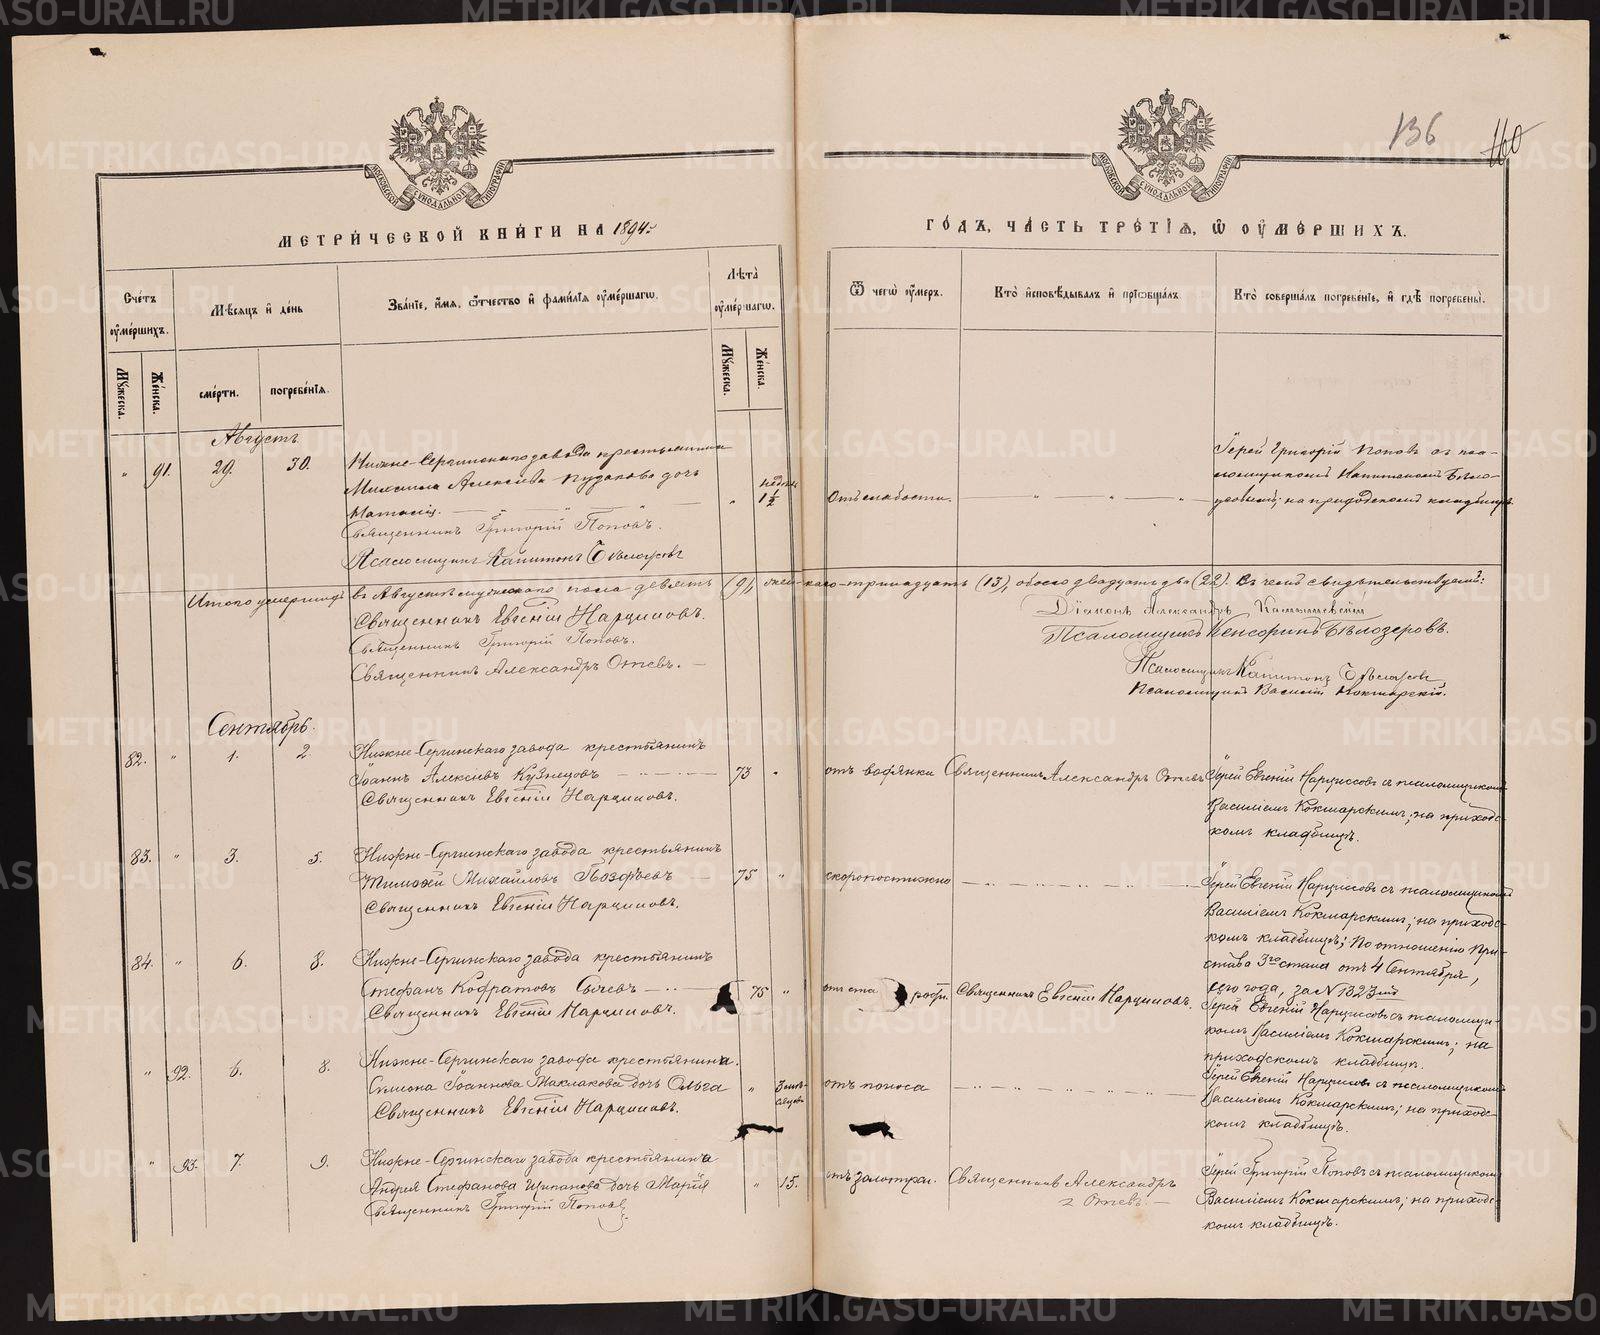 METRIKI.GASO-URAL.RU
136
160
МОСКОВСКОЙ СѴНОДАЛЬНОЙ ТИПОГРАФІИ
МОСКОВСКОЙ СѴНОДАЛЬНОЙ ТИПОГРАФІИ
МЕТРИ́ЧЕСКОЙ КНИ́ГИ НА 1894 г.
ГО́ДЪ, ЧА́СТЬ ТРЕ́ТІѦ, Ѿ ОУМЕ́РШИХЪ.
Сче́тъ оумершихъ.
Мѣсяцъ и день
Званіе, имя, отчество и фамилія оумершаго.
Лѣта оумершаго.
Ѿ чего оумеръ.
Кто исповѣдывалъ и пріобщалъ
Кто совершалъ погребеніе, и гдѣ погребены.
Мужеска.
Женска.
смерти.
погребенія.
Мужеска.
Женска.
Августъ
„ 91. 29. 30. Нижне-Сергинскаго завода крестьянина
Михаила Алексѣева Кудакова дочь
Наталія.
„ недѣли 1½
Отъ слабости. — „ — „ — „
Іерей Григорій Поповъ съ псаломщикомъ Капитономъ на приходскомъ кладбищѣ
Священникъ Григорій Поповъ.
Псаломщикъ Капитонъ
Итого умершихъ въ Августѣ мужескаго пола девять (9), женскаго-тринадцать (13), обоего двадцать два (22). Въ чемъ свидѣтельствуемъ:
Священникъ Евгеній Нарциссовъ.
Священникъ Григорій Поповъ.
Священникъ Александръ Отевъ. —
Діаконъ Александръ Камышевскій
Псаломщикъ Кенсоринъ Бѣлозеровъ.
Псаломщикъ Капитонъ
Псаломщикъ Василій Кокшарскій.
Сентябрь.
82. „ 1. 2. Нижне-Сергинскаго завода крестьянинъ
Іоаннъ Алексіевъ Кузнецовъ
Священникъ Евгеній Нарциссовъ.
73 „
отъ водянки
Священникъ Александръ Отевъ
Іерей Евгеній Нарциссовъ съ псаломщикомъ
Василіемъ Кокшарскимъ; на приходс-
комъ кладбищѣ.
83. „ 3. 5. Нижне-Сергинскаго завода крестьянинъ
Тимофей Михайловъ Поздѣевъ
Священникъ Евгеній Нарциссовъ.
75 „
скоропостижно
Іерей Евгеній Нарциссовъ съ псаломщикомъ
Василіемъ Кокшарскимъ; на приходс-
комъ кладбищѣ; По отношенію При-
става 3го стана отъ 4 Сентября,
сего года, за N 1323мъ
84. „ 6. 8. Нижне-Сергинскаго завода крестьянинъ
Стефанъ Кодратовъ Сычевъ
Священникъ Евгеній Нарциссовъ.
75 „
отъ старости.
Священникъ Евгеній Нарциссовъ.
Іерей Евгеній Нарциссовъ съ псаломщи-
комъ Василіемъ Кокшарскимъ; на
приходскомъ кладбищѣ.
„ 92. 6. 8. Нижне-Сергинскаго завода крестьянина
Симона Іоаннова Маклакова дочь Ольга
Священникъ Евгеній Нарциссовъ.
„ 3 мѣ-
сяцевъ
отъ поноса
Іерей Евгеній Нарциссовъ съ псаломщикомъ
Василіемъ Кокшарскимъ; на приходс-
комъ кладбищѣ.
„ 93. 7. 9. Нижне-Сергинскаго завода крестьянина
Андрея Стефанова Щипанова дочь Марія
Священникъ Григорій Поповъ
„ 15.
отъ золотухи.
Священникъ Александръ
Отевъ. —
Іерей Григорій Поповъ съ псаломщикомъ
Василіемъ Кокшарскимъ; на приходс-
комъ кладбищѣ.